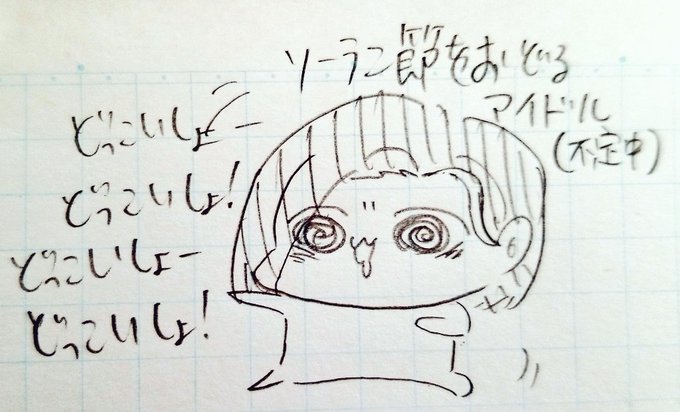 ソーラン節をおどる
アイドル
(不定中)
どっこいしょー
どっこいしょ!
どっこいしょー
どっこいしょ!